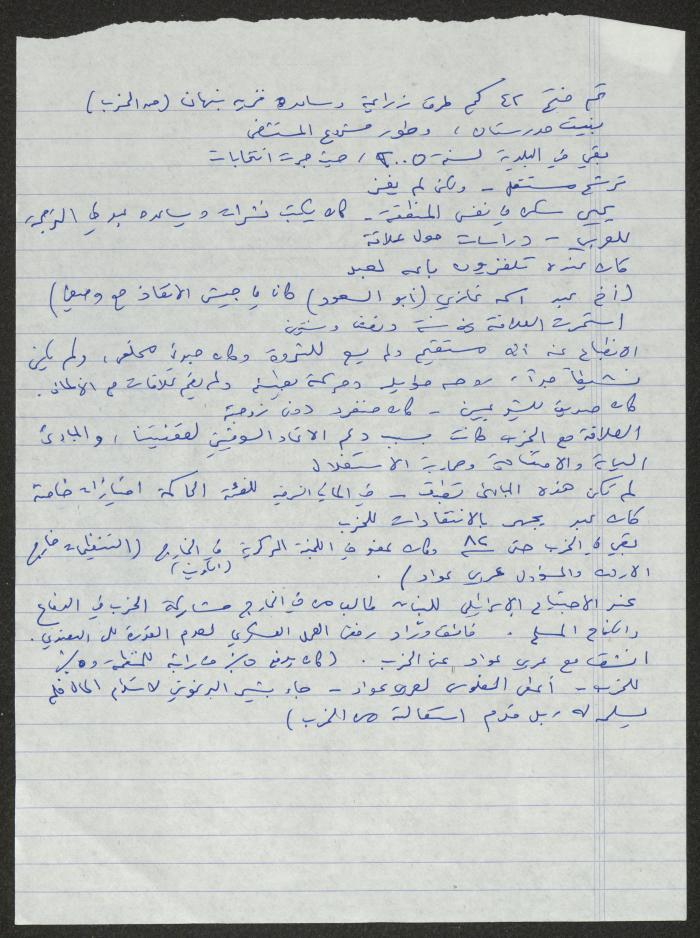 تم فتح ٤٢ كم طرق زراعية وساعده نمر بنهان (من الحزب)
بنيت مدرستان، وطور مشروع المستشفى
بقي في البلدية لسنة ٢٠٠٥، حيث جرت انتخابات
ترشح مستقل - ولكن لم يفز
يحيى سكن في نفس المنطقة - كان يكتب نشرات ويساعده عبد في الترجمة
للعربي - دراسات حول علاقة
كان عنده تلفزيون باعه لعبد
(أخ عبد اسمه غازي (أبو السعود) كان في جيش الانقاذ مع وصفي)
استمرت العلاقة سنة ونصف وسنتين
الانطباع عنه انه مستقيم ولم يسع للثروة وكان حزبي مخلص، ولم يكن
نشيطاً جداً، روحه وحركته بطيئة ولم يقم علاقات مع الألمان.
كان صديق للشيوعيين - كان منفرد دون زوجة
العلاقة مع الحزب كانت بسبب دعم الاتحاد السوفيتي لقضيتنا، والمبادئ
السياسية والاجتماعية ومحاربة الاستغلال
لم تكن هذه المبادئ تطبق - في المانيا الشرقية للفئة الحاكمة امتيازات خاصة
كان عبد يجهر بالانتقادات للحزب
بقي في الحزب حتى ٨٢ وكان عضو في اللجنة المركزية في الخارج (التنظيمات خارج
الاردن والمسؤول عربي عواد).
عند الاجتياح الإسرائيلي للبنان طالب من في الخارج مشاركة الحزب في الدفاع
والكفاح المسلح. فائق وراد رفض العمل العسكري لعدم القدرة
انشق مع عربي عواد عن الحزب. (كان يدفع ٥٪ من راتبه للمنظمة و٥٪
للحزب - أعطى الفلوس لعربي عواد - جاء بشير البرغوثي لاستلام المال فلم
يسلمه له بل قدم استقالة من الحزب)